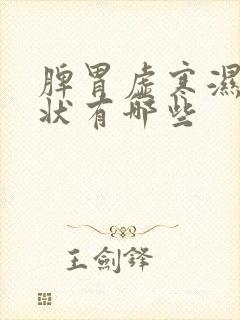 脾胃虚寒濕
状有哪些
王劍鋒